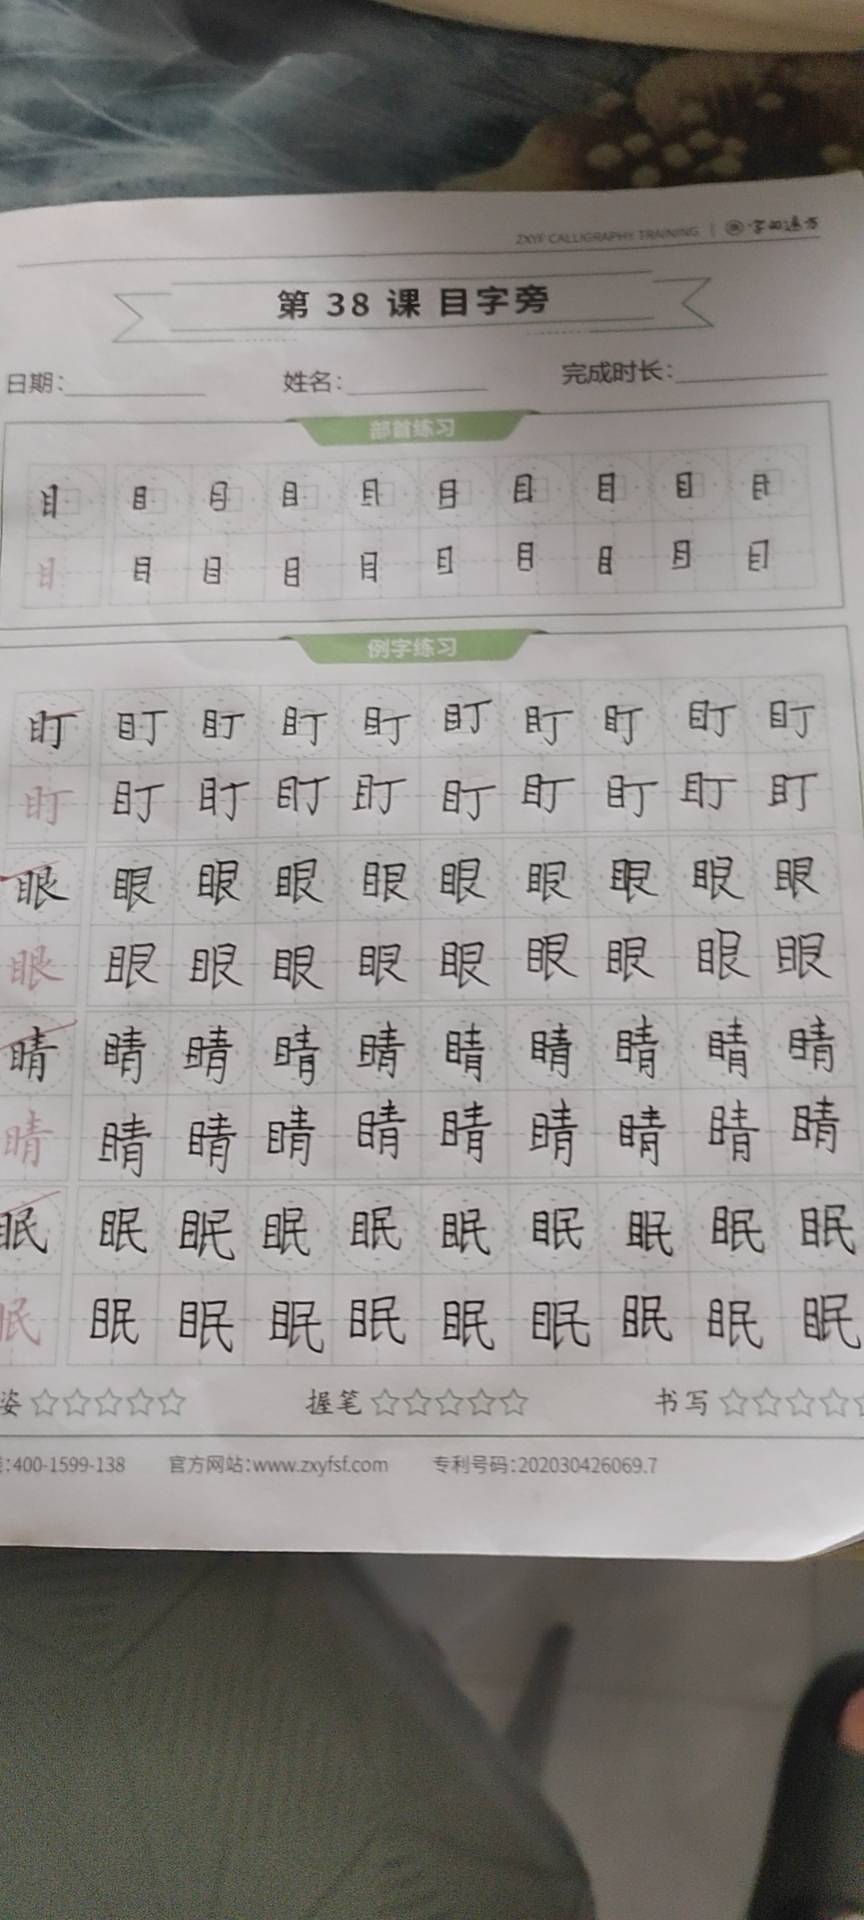 ZXYF CALLIGRAPHY TRAINING |
第 38 课 目字旁
日期: 姓名: 完成时长:
部首练习
目 目 目 目 目 目 目 目 目 目
目 目 目 目 目 目 目 目 目 目
例字练习
盯 盯 盯 盯 盯 盯 盯 盯 盯 盯
盯 盯 盯 盯 盯 盯 盯 盯 盯 盯
眼 眼 眼 眼 眼 眼 眼 眼 眼 眼
眼 眼 眼 眼 眼 眼 眼 眼 眼 眼
睛 睛 睛 睛 睛 睛 睛 睛 睛 睛
睛 睛 睛 睛 睛 睛 睛 睛 睛 睛
眠 眠 眠 眠 眠 眠 眠 眠 眠 眠
眠 眠 眠 眠 眠 眠 眠 眠 眠 眠
姿 ☆☆☆☆☆ 握笔 ☆☆☆☆☆ 书写 ☆☆☆☆☆
:400-1599-138 官方网站:www.zxyfsf.com 专利号码:202030426069.7